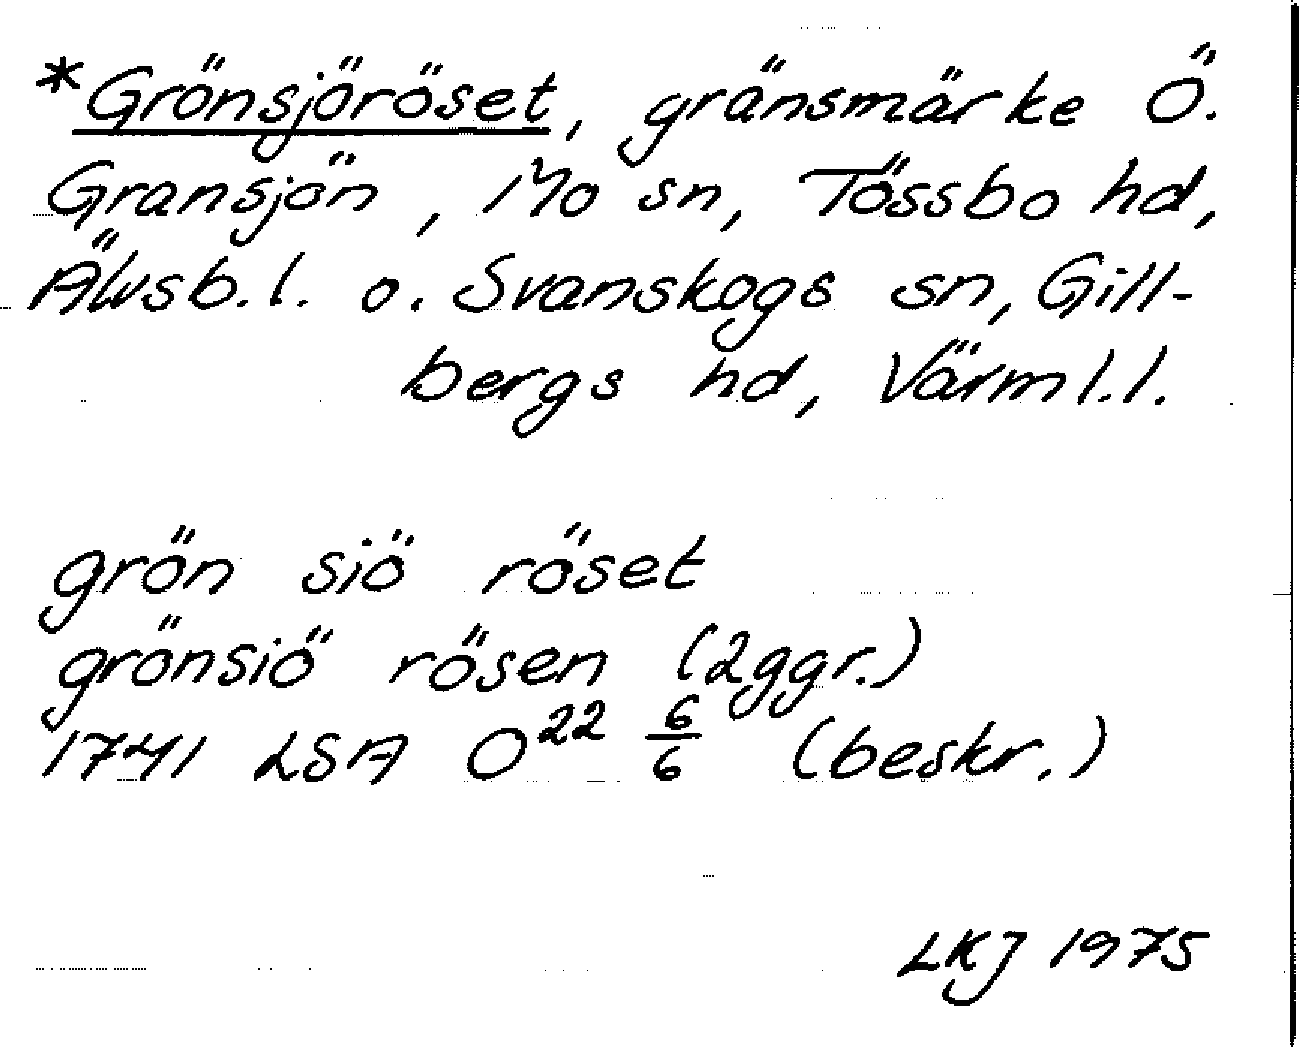 *Grönsjöröset, gränsmärke Ö.
Gransjön, Mo sn, Tössbo hd,
Älvsb.l. o. Svanskogs sn, Gill-
bergs hd, Värml.l.
grön siö röset
grönsiö rösen (2ggr.)
1741 LSA O²² 6/6 (beskr.)
LKJ 1975